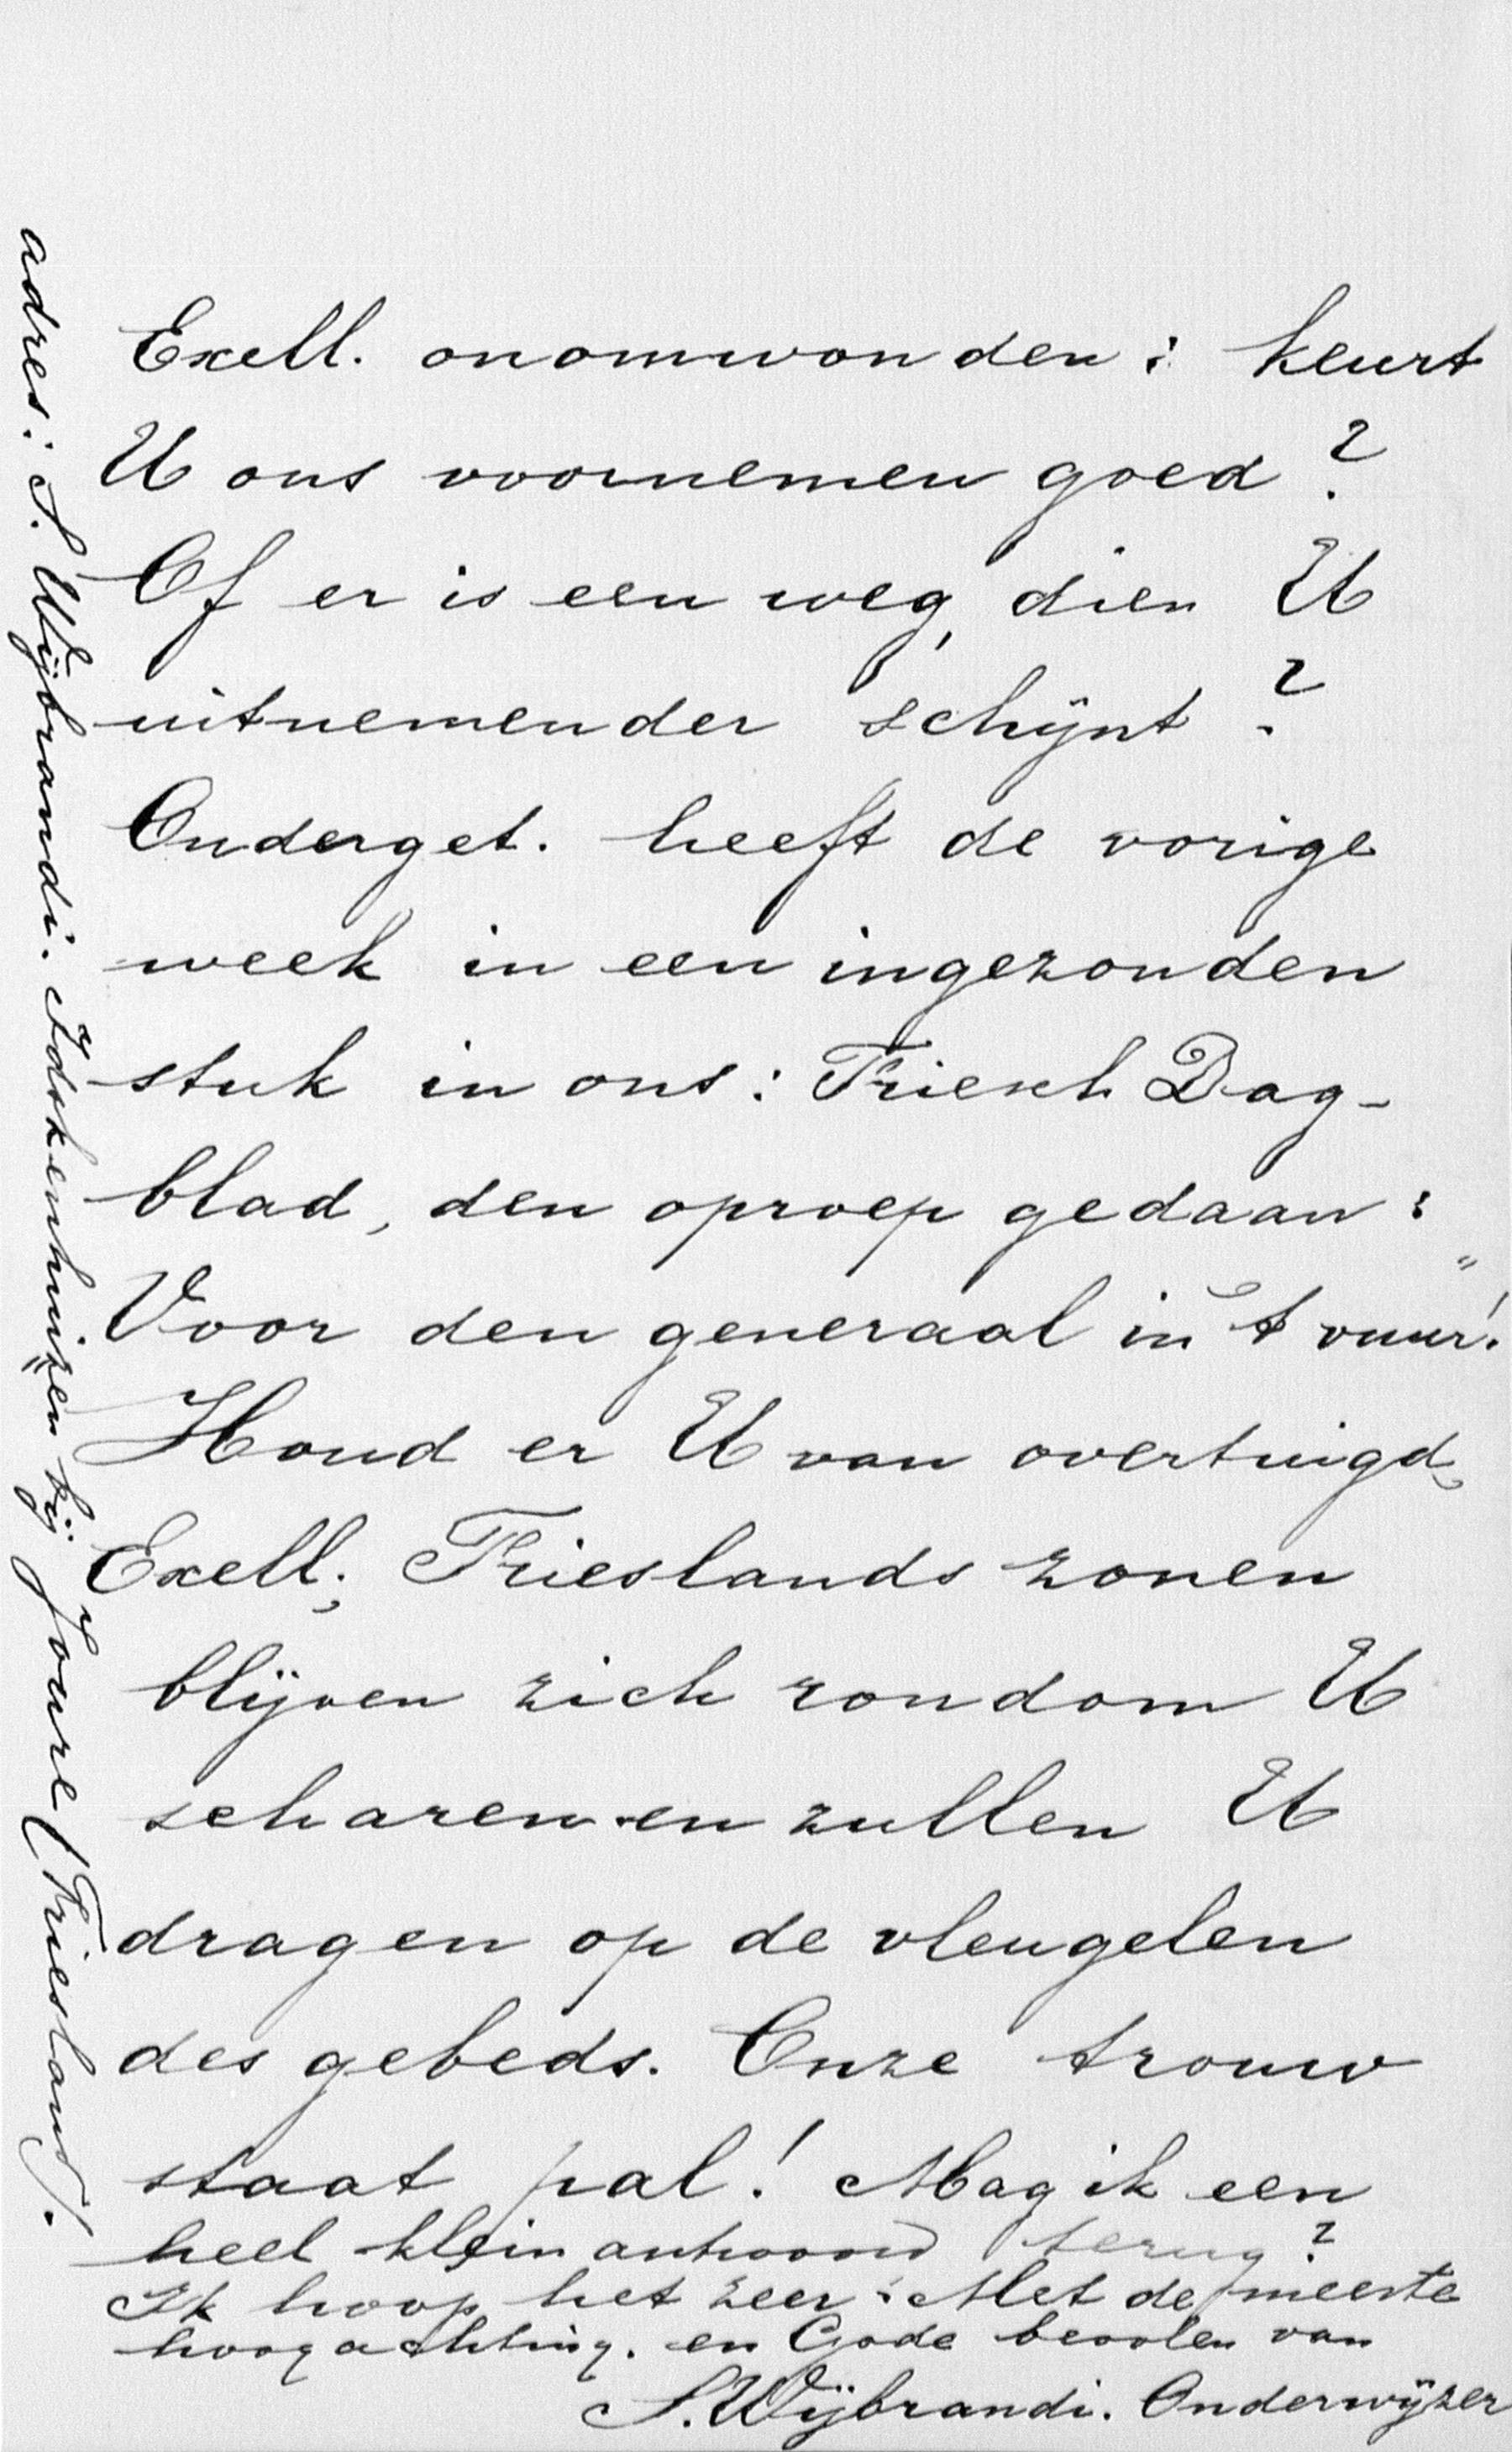 Exell. onomwonden: keurt
U ons voornemen goed?
Of er is een weg, dien U
uitnemender schijnt?
Onderget. heeft de vorige
week in een ingezonden
stuk in ons: Friesch Dag-
blad, den oproep gedaan:
Voor den generaal in 't vuur!"
Houd er U van overtuigd,
Exell., Frieslands zonen
blijven zich rondom U
scharen en zullen U
dragen op de vleugelen
des gebeds. Onze trouw
staat pal! Mag ik een
heel klein antwoord terug?
Ik hoop het zeer. Met de meeste
hoogachting. en Gode bevolen van
S. Wijbrandi. Onderwijzer
adres: S. Wijbrandi. Idskenhuizen bij Joure (Friesland).